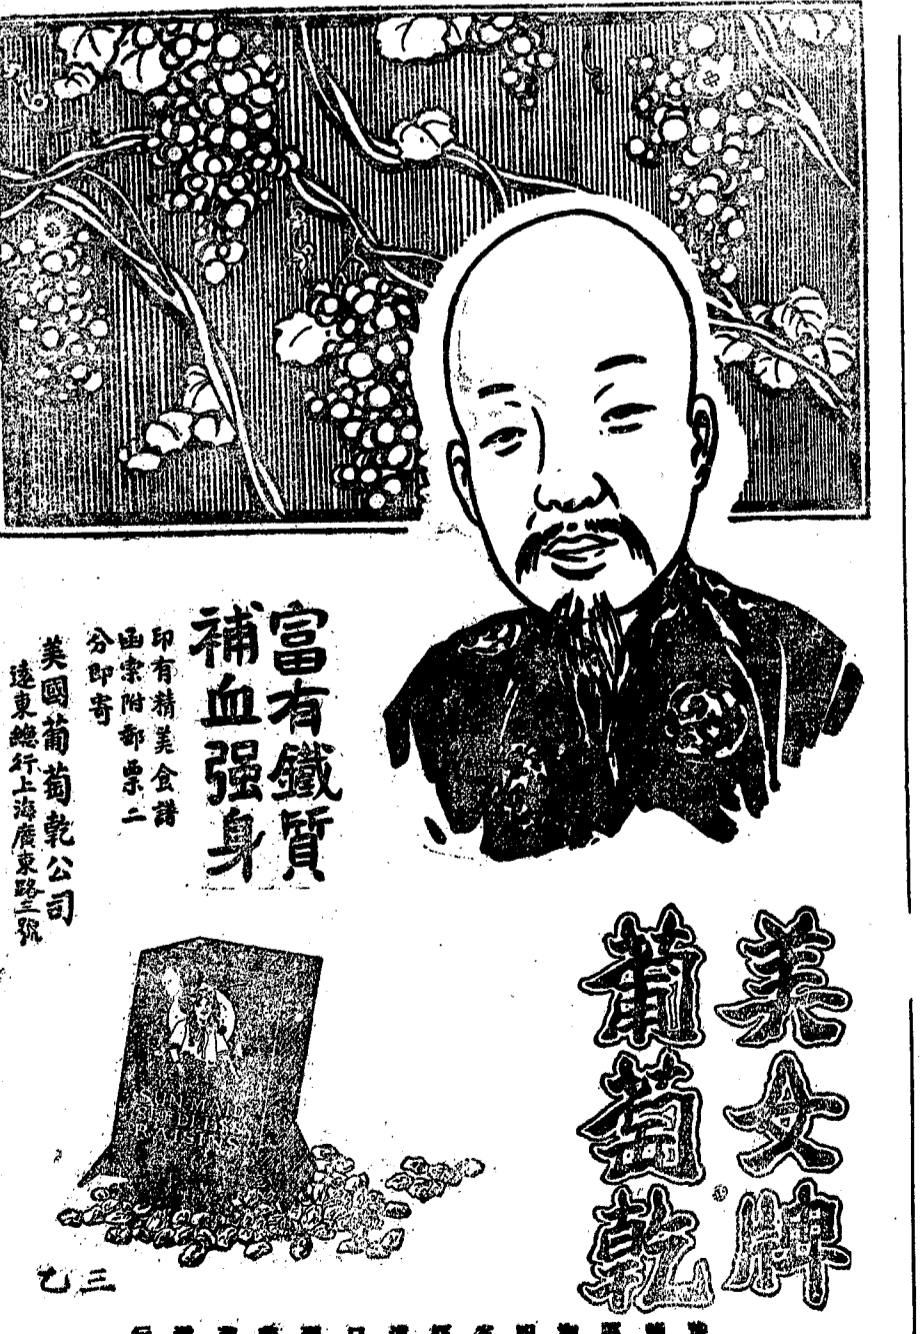 美女牌
葡萄乾
富有鐵質
補血强身
印有精美食譜
函索附郵票二
分即寄
美國葡萄乾公司
遠東總行上海廣東路三號
SUN-MAID
SEEDLESS
RAISINS
三乙